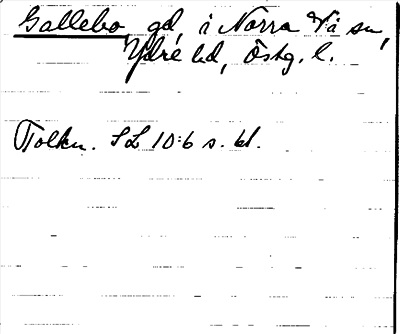 Gallebo, gd, i Norra Vi sn,
Ydre hd, Östg. l.
Tolkn. SL 10:6 s. 61.